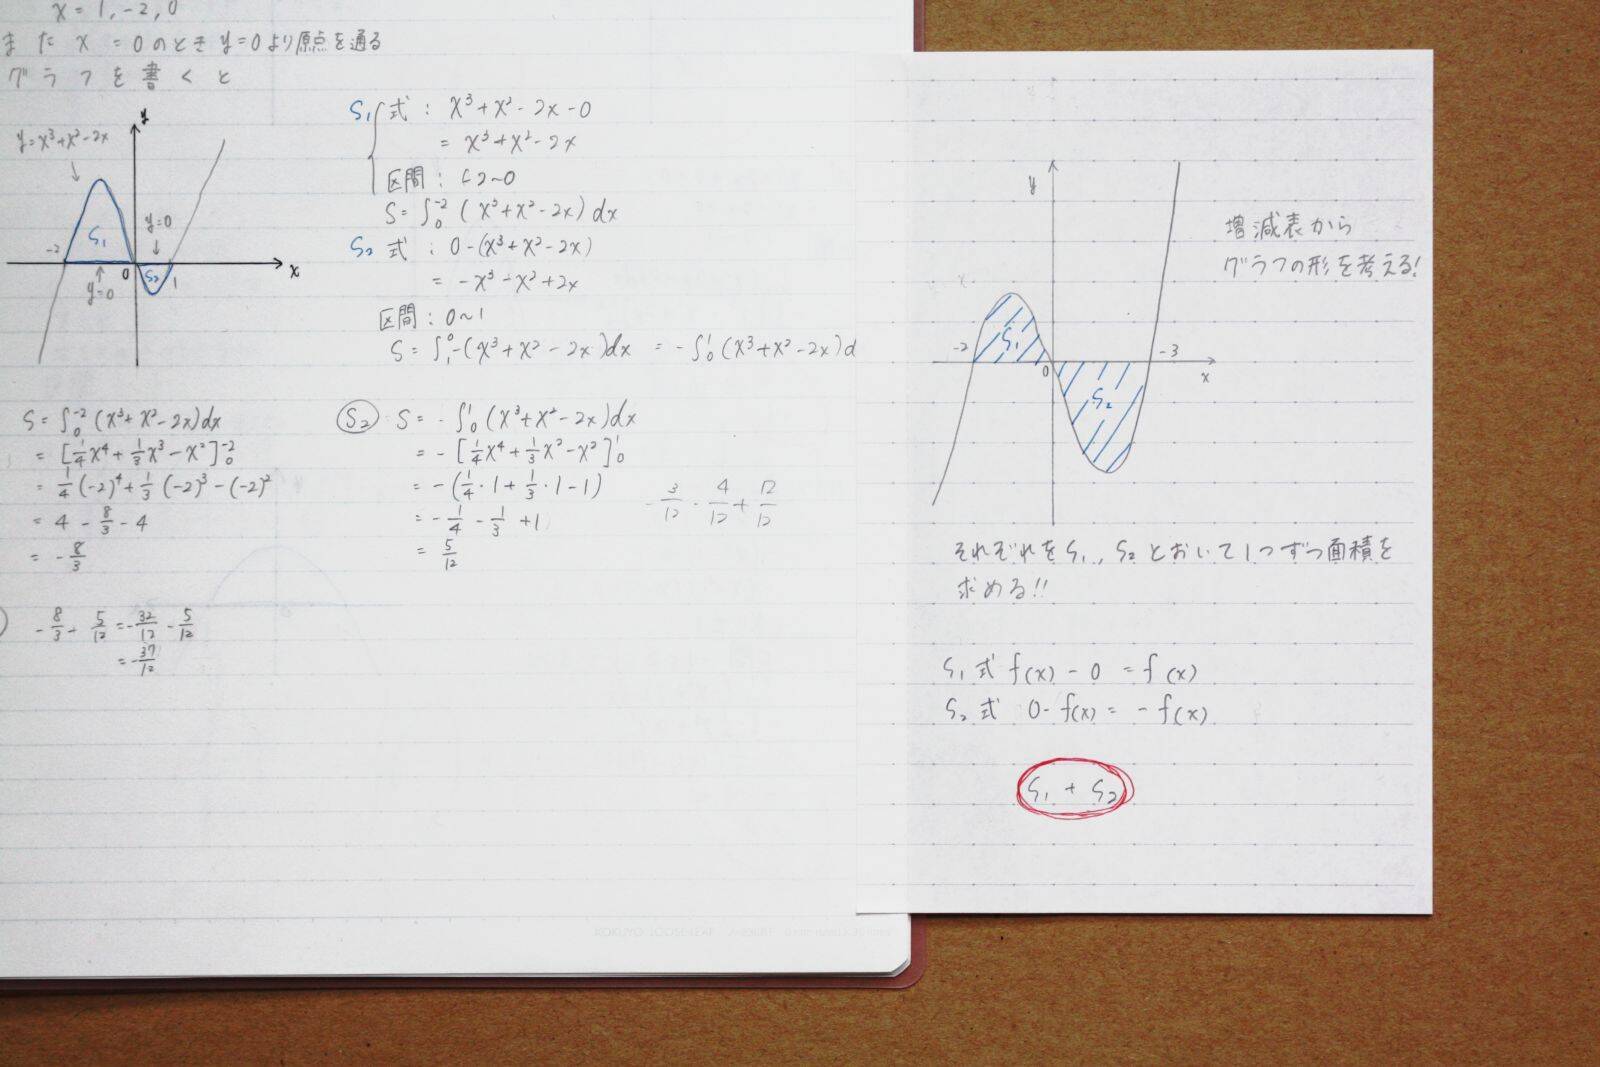 x = 1, -2, 0
また x = 0 のとき y=0 より原点を通る
グラフを書くと
y=x³+x²-2x
y
S₁
y=0
-2
0
S₂
1
x
y=0
S₁ 式 : x³+x²-2x-0
= x³+x²-2x
区間 : -2~0
S=∫₀⁻² (x³+x²-2x)dx
S₂ 式 : 0-(x³+x²-2x)
= -x³-x²+2x
区間 : 0~1
S=∫₁⁰-(x³+x²-2x)dx = -∫₀¹(x³+x²-2x)d
S=∫₀⁻²(x³+x²-2x)dx
= [1/4x⁴+1/3x³-x²]₀⁻²
= 1/4(-2)⁴+1/3(-2)³-(-2)²
= 4 - 8/3 - 4
= - 8/3
- 8/3 - 5/12 = - 32/12 - 5/12
= - 37/12
S₂ S = -∫₀¹(x³+x²-2x)dx
= -[1/4x⁴+1/3x²-x²]₀¹
= -(1/4・1+1/3・1-1)
= - 1/4 - 1/3 + 1
= 5/12
- 3/12 - 4/12 + 12/12
y
-2
S₁
0
S₂
-3
x
増減表から
グラフの形を考える!
それぞれをS₁, S₂とおいて1つずつ面積を
求める!!
S₁式 f(x) - 0 = f(x)
S₂式 0-f(x) = -f(x)
S₁ + S₂